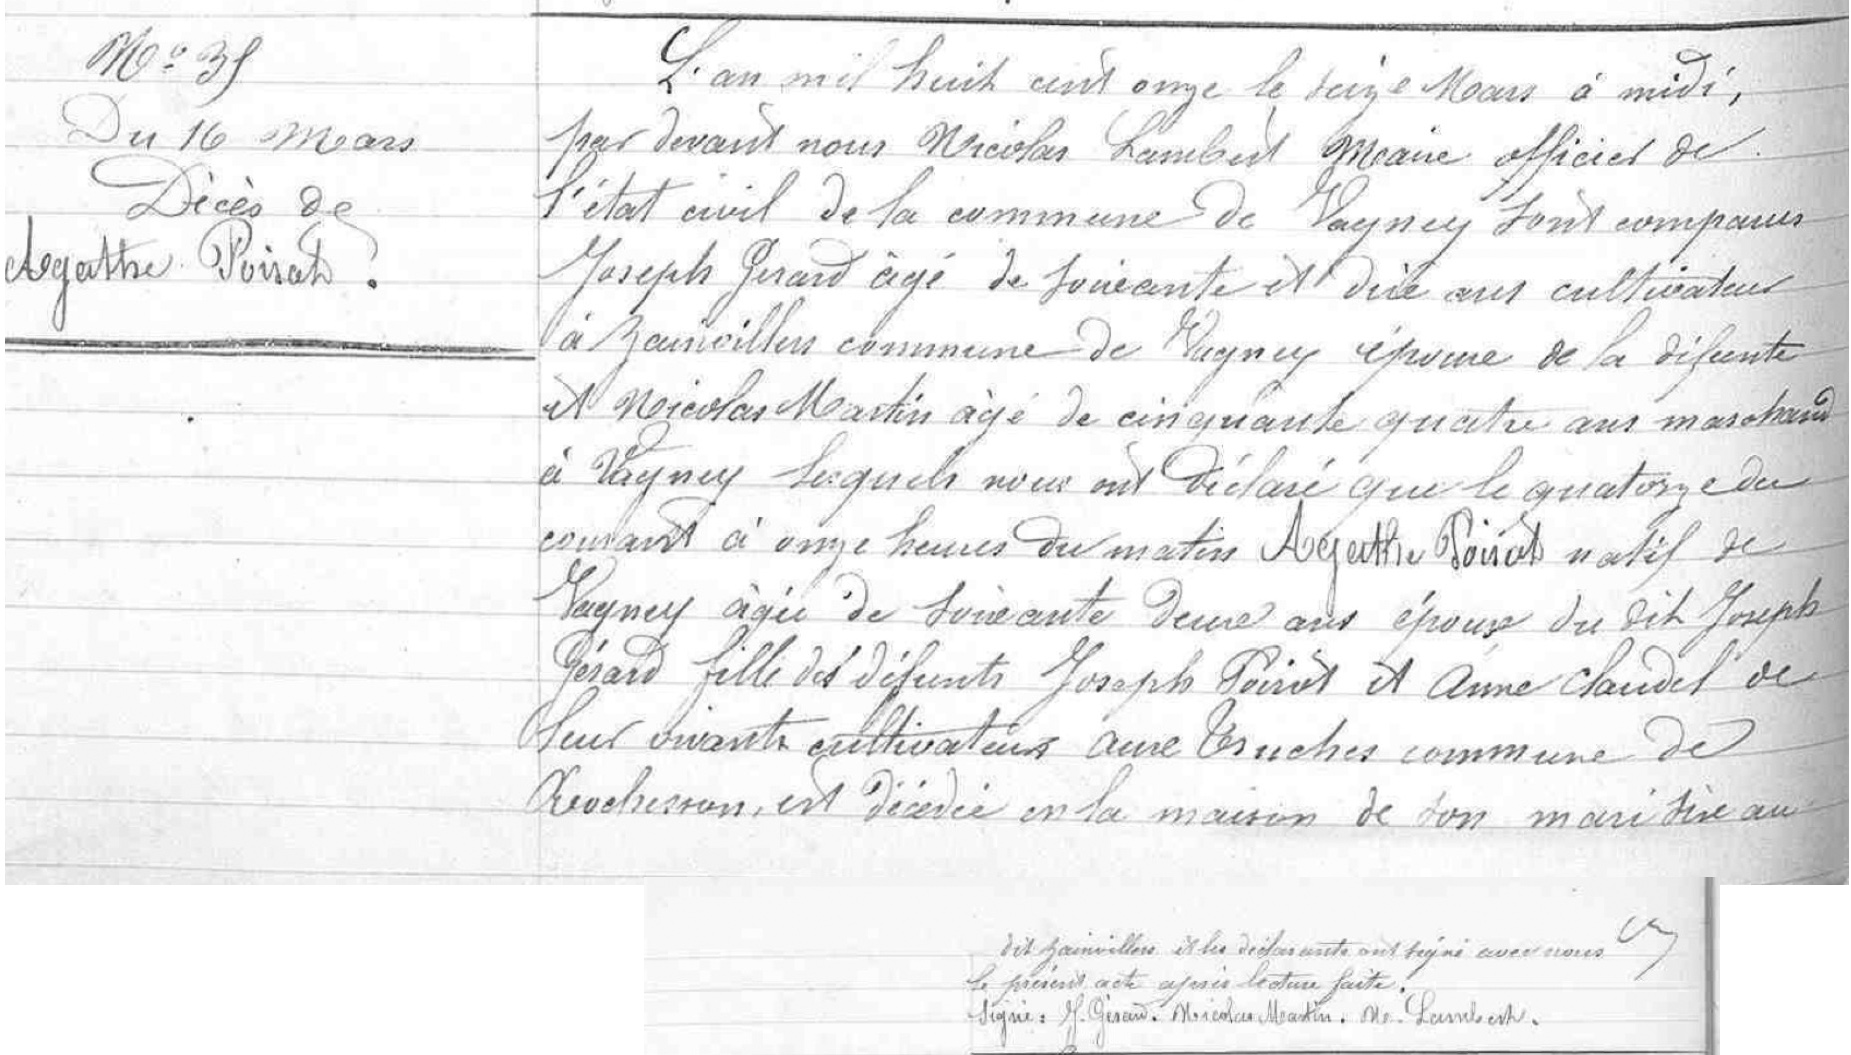 No 35
Du 16 Mars
Décès de
Agathe Poirot.
L'an mil huit cent onze le seize Mars à midi,
par devant nous Nicolas Lambert Maire officier de
l'état civil de la commune de Vagney sont comparus
Joseph Gerard âgé de soixante et dix ans cultivateur
à Zainvillers commune de Vagney époux de la défunte
et Nicolas Martin âgé de cinquante quatre ans marchand
à Vagney lesquels nous ont déclaré que le quatorze du
courant à onze heures du matin Agathe Poirot natif de
Vagney âgée de soixante deux ans épouse du dit Joseph
Gérard fille des défunts Joseph Poirot et Anne Claudel de
leur vivants cultivateurs aux Truches commune de
Rochesson, est décédée en la maison de son mari sise au
dit Zainvillers et les déclarants ont signé avec nous
le présent acte après lecture faite.
Signé : J. Gérard. Nicolas Martin. N. Lambert.